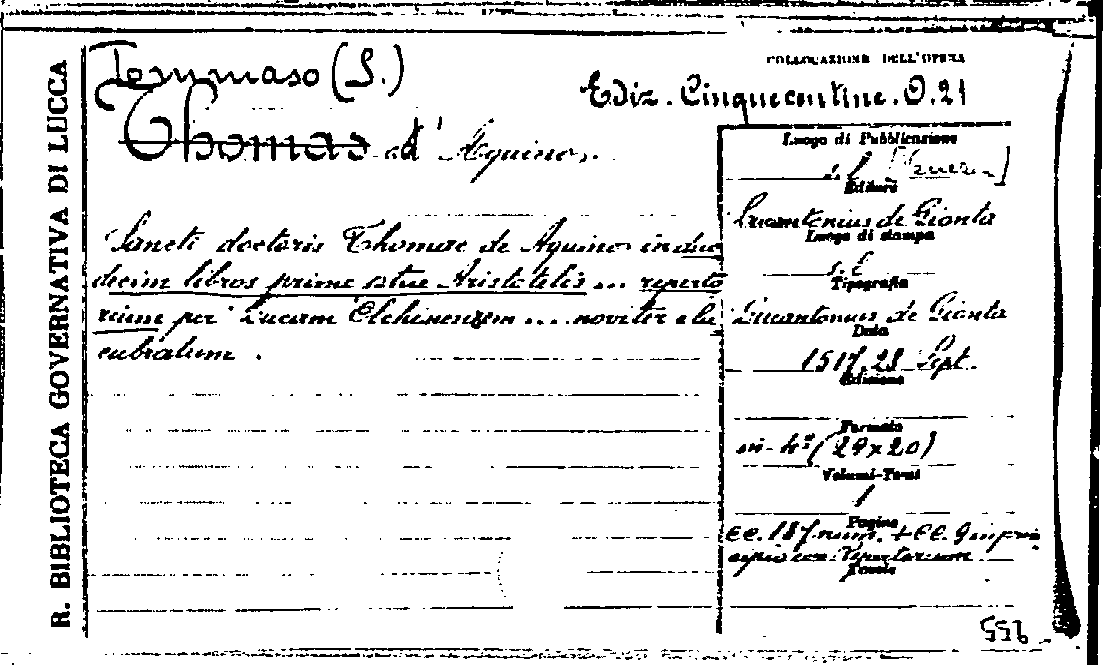 R. BIBLIOTECA GOVERNATIVA DI LUCCA
Tommaso (S.)
Thomas d' Aquino.
COLLOCAZIONE DELL'OPERA
Ediz. Cinquecentine. O. 21
Sancti doctoris Thomae de Aquino in duo
decim libros prime Aristotelis ... reperto
rium per Lucam ... noviter elu
cubratum.
Luogo di Pubblicazione
s. l.
Editore
Lucantonius de Gionta
Luogo di stampa
s. l.
Tipografia
Lucantonius de Gionta
Data
1517, 28 Sept.
Edizione
Formato
in-4º (29x20)
Volumi-Tomi
1
Pagine
cc. 187 num. + cc. 9 in prin
cipio con Repertorium
Tavole
556